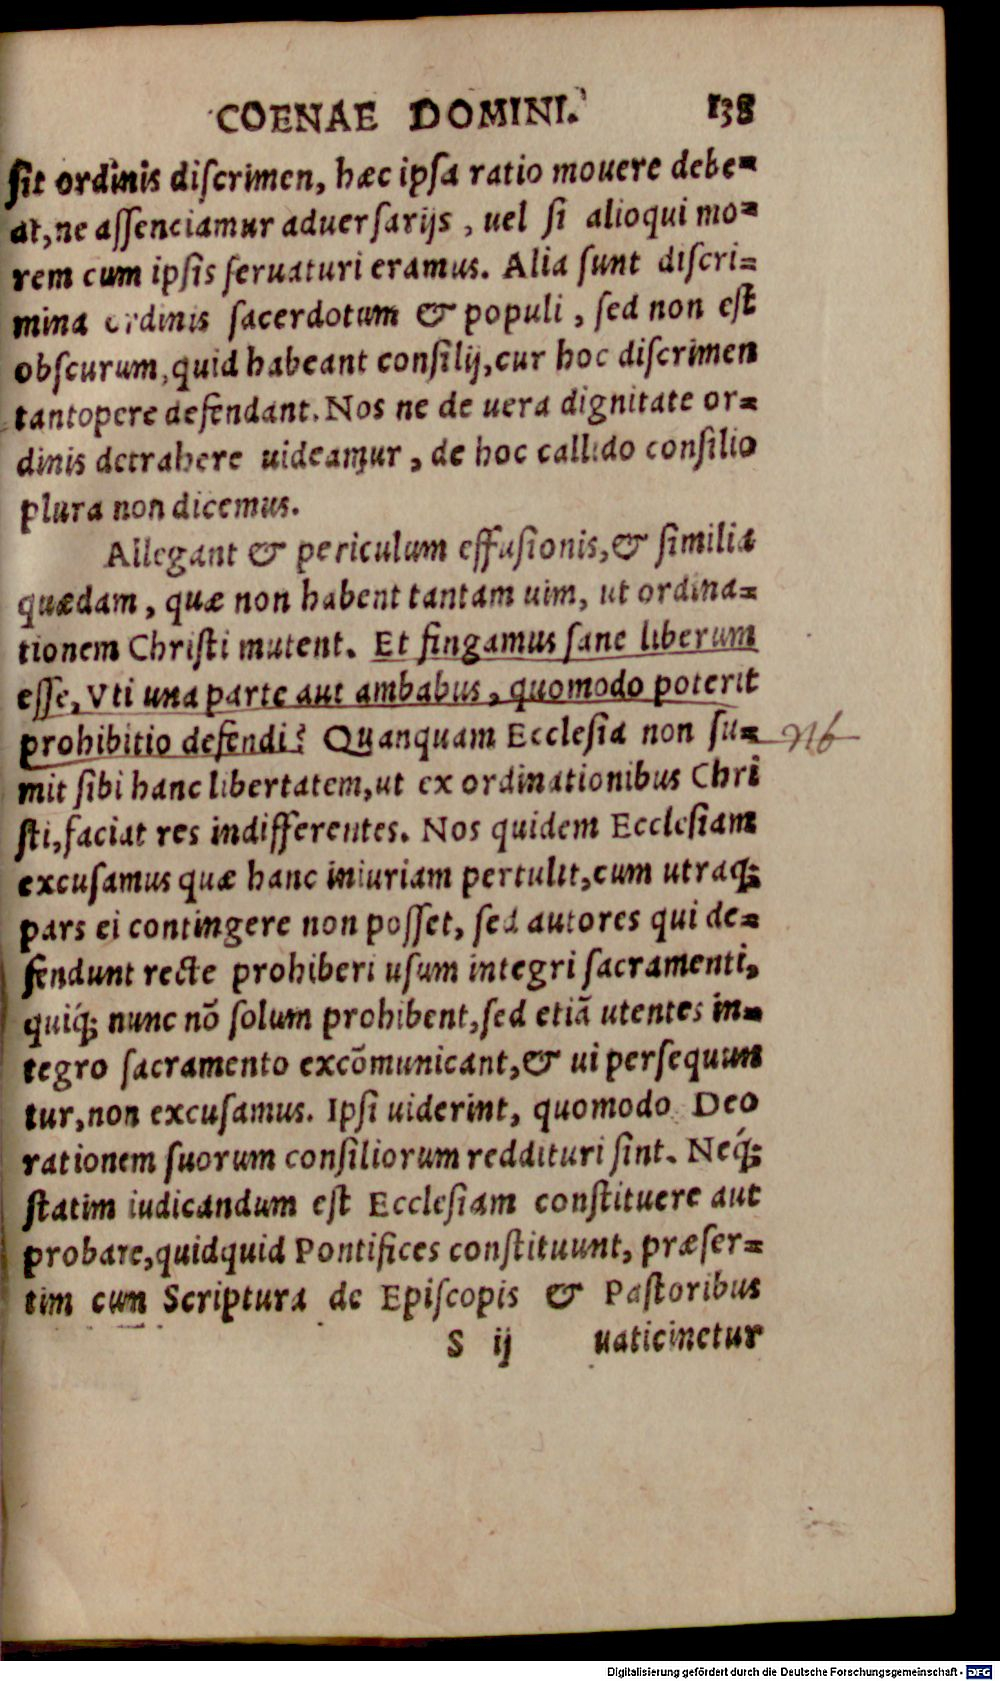 COENAE DOMINI. 138
ſit ordinis diſcrimen, hæc ipſa ratio mouere debe=
at, ne aſſenciamur aduerſarijs, uel ſi alioqui mo=
rem cum ipſis ſeruaturi eramus. Alia ſunt diſcri=
mina ordinis ſacerdotum & populi, ſed non eſt
obſcurum, quid habeant conſilij, cur hoc diſcrimen
tantopere defendant. Nos ne de uera dignitate or=
dinis detrahere uideamur, de hoc callido conſilio
plura non dicemus.
Allegant & periculum effuſionis, & ſimilia
quædam, quæ non habent tantam uim, ut ordina=
tionem Chriſti mutent. Et fingamus ſane liberum
eſſe, Vti una parte aut ambabus, quomodo poterit
prohibitio defendi? Quanquam Eccleſia non ſu=
Nb
mit ſibi hanc libertatem, ut ex ordinationibus Chri
ſti, faciat res indifferentes. Nos quidem Eccleſiam
excuſamus quæ hanc iniuriam pertulit, cum utraq;
pars ei contingere non poſſet, ſed autores qui de=
fendunt recte prohiberi uſum integri ſacramenti,
quiq́; nunc nõ ſolum prohibent, ſed etiã utentes in=
tegro ſacramento excõmunicant, & ui perſequun
tur, non excuſamus. Ipſi uiderint, quomodo Deo
rationem ſuorum conſiliorum reddituri ſint. Neq́;
ſtatim iudicandum eſt Eccleſiam conſtituere aut
probare, quidquid Pontifices conſtituunt, præſer=
tim cum Scriptura de Epiſcopis & Paſtoribus
S ij uaticinetur
Digitalisierung gefördert durch die Deutsche Forschungsgemeinschaft - DFG